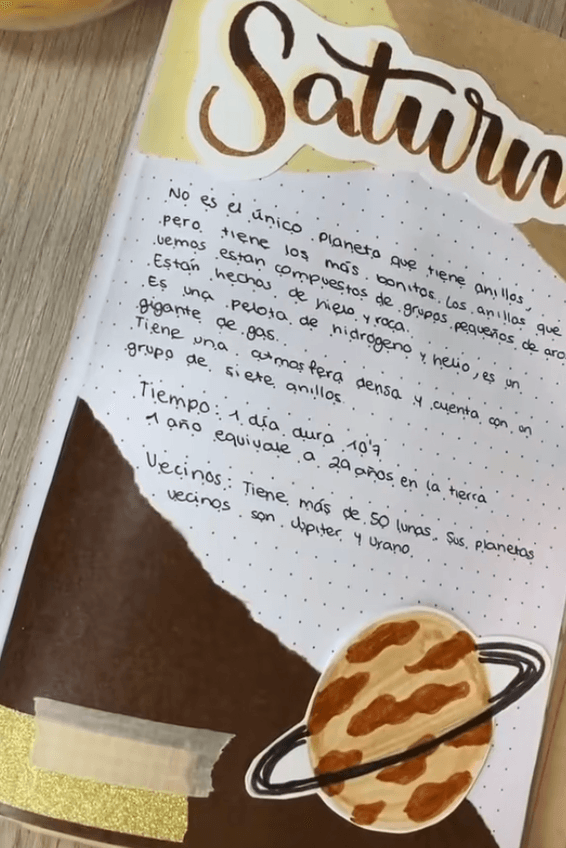 Saturn
No es el único planeta que tiene anillos,
pero tiene los más bonitos. Los anillos que
vemos estan compuestos de grupos pequeños de aro
Están hechas de hielo y roca.
Es una pelota de hidrogeno y helio, es un
gigante de gas.
Tiene una atmosfera densa y cuenta con un
grupo de siete anillos.
Tiempo: 1 día dura 10'7
1 año equivale a 29 años en la tierra
Vecinos: Tiene más de 50 lunas. Sus planetas
vecinos son Jupiter y Urano.